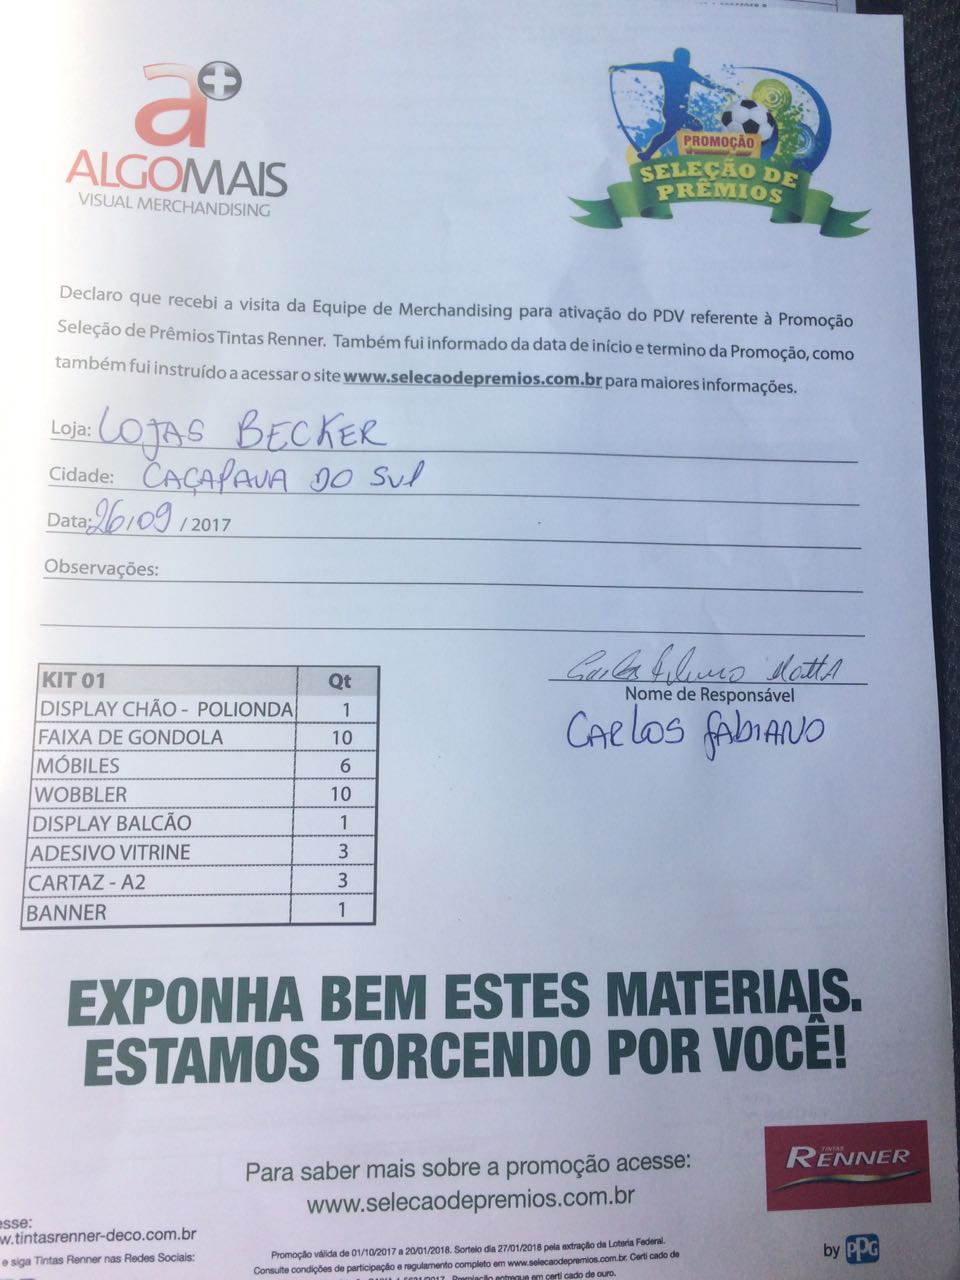 a+
ALGOMAIS
VISUAL MERCHANDISING
PROMOÇÃO
SELEÇÃO DE
PRÊMIOS
Declaro que recebi a visita da Equipe de Merchandising para ativação do PDV referente à Promoção
Seleção de Prêmios Tintas Renner. Também fui informado da data de início e termino da Promoção, como
também fui instruído a acessar o site www.selecaodepremios.com.br para maiores informações.
Loja: LOJAS BECKER
Cidade: CAÇAPAVA DO SUL
Data: 26/09 / 2017
Observações:
Nome de Responsável
CARLOS FABIANO
KIT 01 Qt
DISPLAY CHÃO - POLIONDA 1
FAIXA DE GONDOLA 10
MÓBILES 6
WOBBLER 10
DISPLAY BALCÃO 1
ADESIVO VITRINE 3
CARTAZ - A2 3
BANNER 1
EXPONHA BEM ESTES MATERIAIS.
ESTAMOS TORCENDO POR VOCÊ!
Para saber mais sobre a promoção acesse:
www.selecaodepremios.com.br
TINTAS
RENNER
by PPG
esse:
w.tintasrenner-deco.com.br
e siga Tintas Renner nas Redes Sociais:
Promoção válida de 01/10/2017 a 20/01/2018. Sorteio dia 27/01/2018 pela extração da Loteria Federal.
Consulte condições de participação e regulamento completo em www.selecaodepremios.com.br. Certi cado de
Premiação entregue em certi cado de ouro.